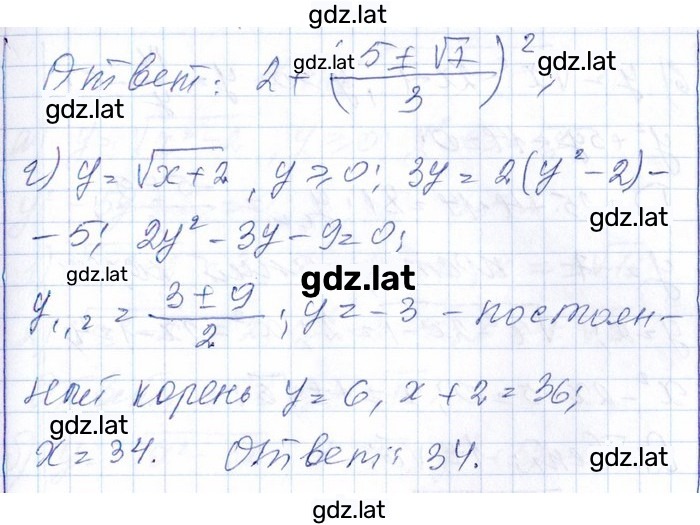 gdz.lat
Ответ: 2 + ((5 ± √7)/3)²;
gdz.lat
gdz.lat
gdz.lat
г) y = √(x+2), y ⩾ 0; 3y = 2(y² - 2) -
gdz.lat
- 5; 2y² - 3y - 9 = 0;
gdz.lat
gdz.lat
y₁,₂ = (3 ± 9)/2; y = -3 - постоян-
ный корень y = 6, x + 2 = 36;
gdz.lat
x = 34. Ответ: 34.
gdz.lat
gdz.lat